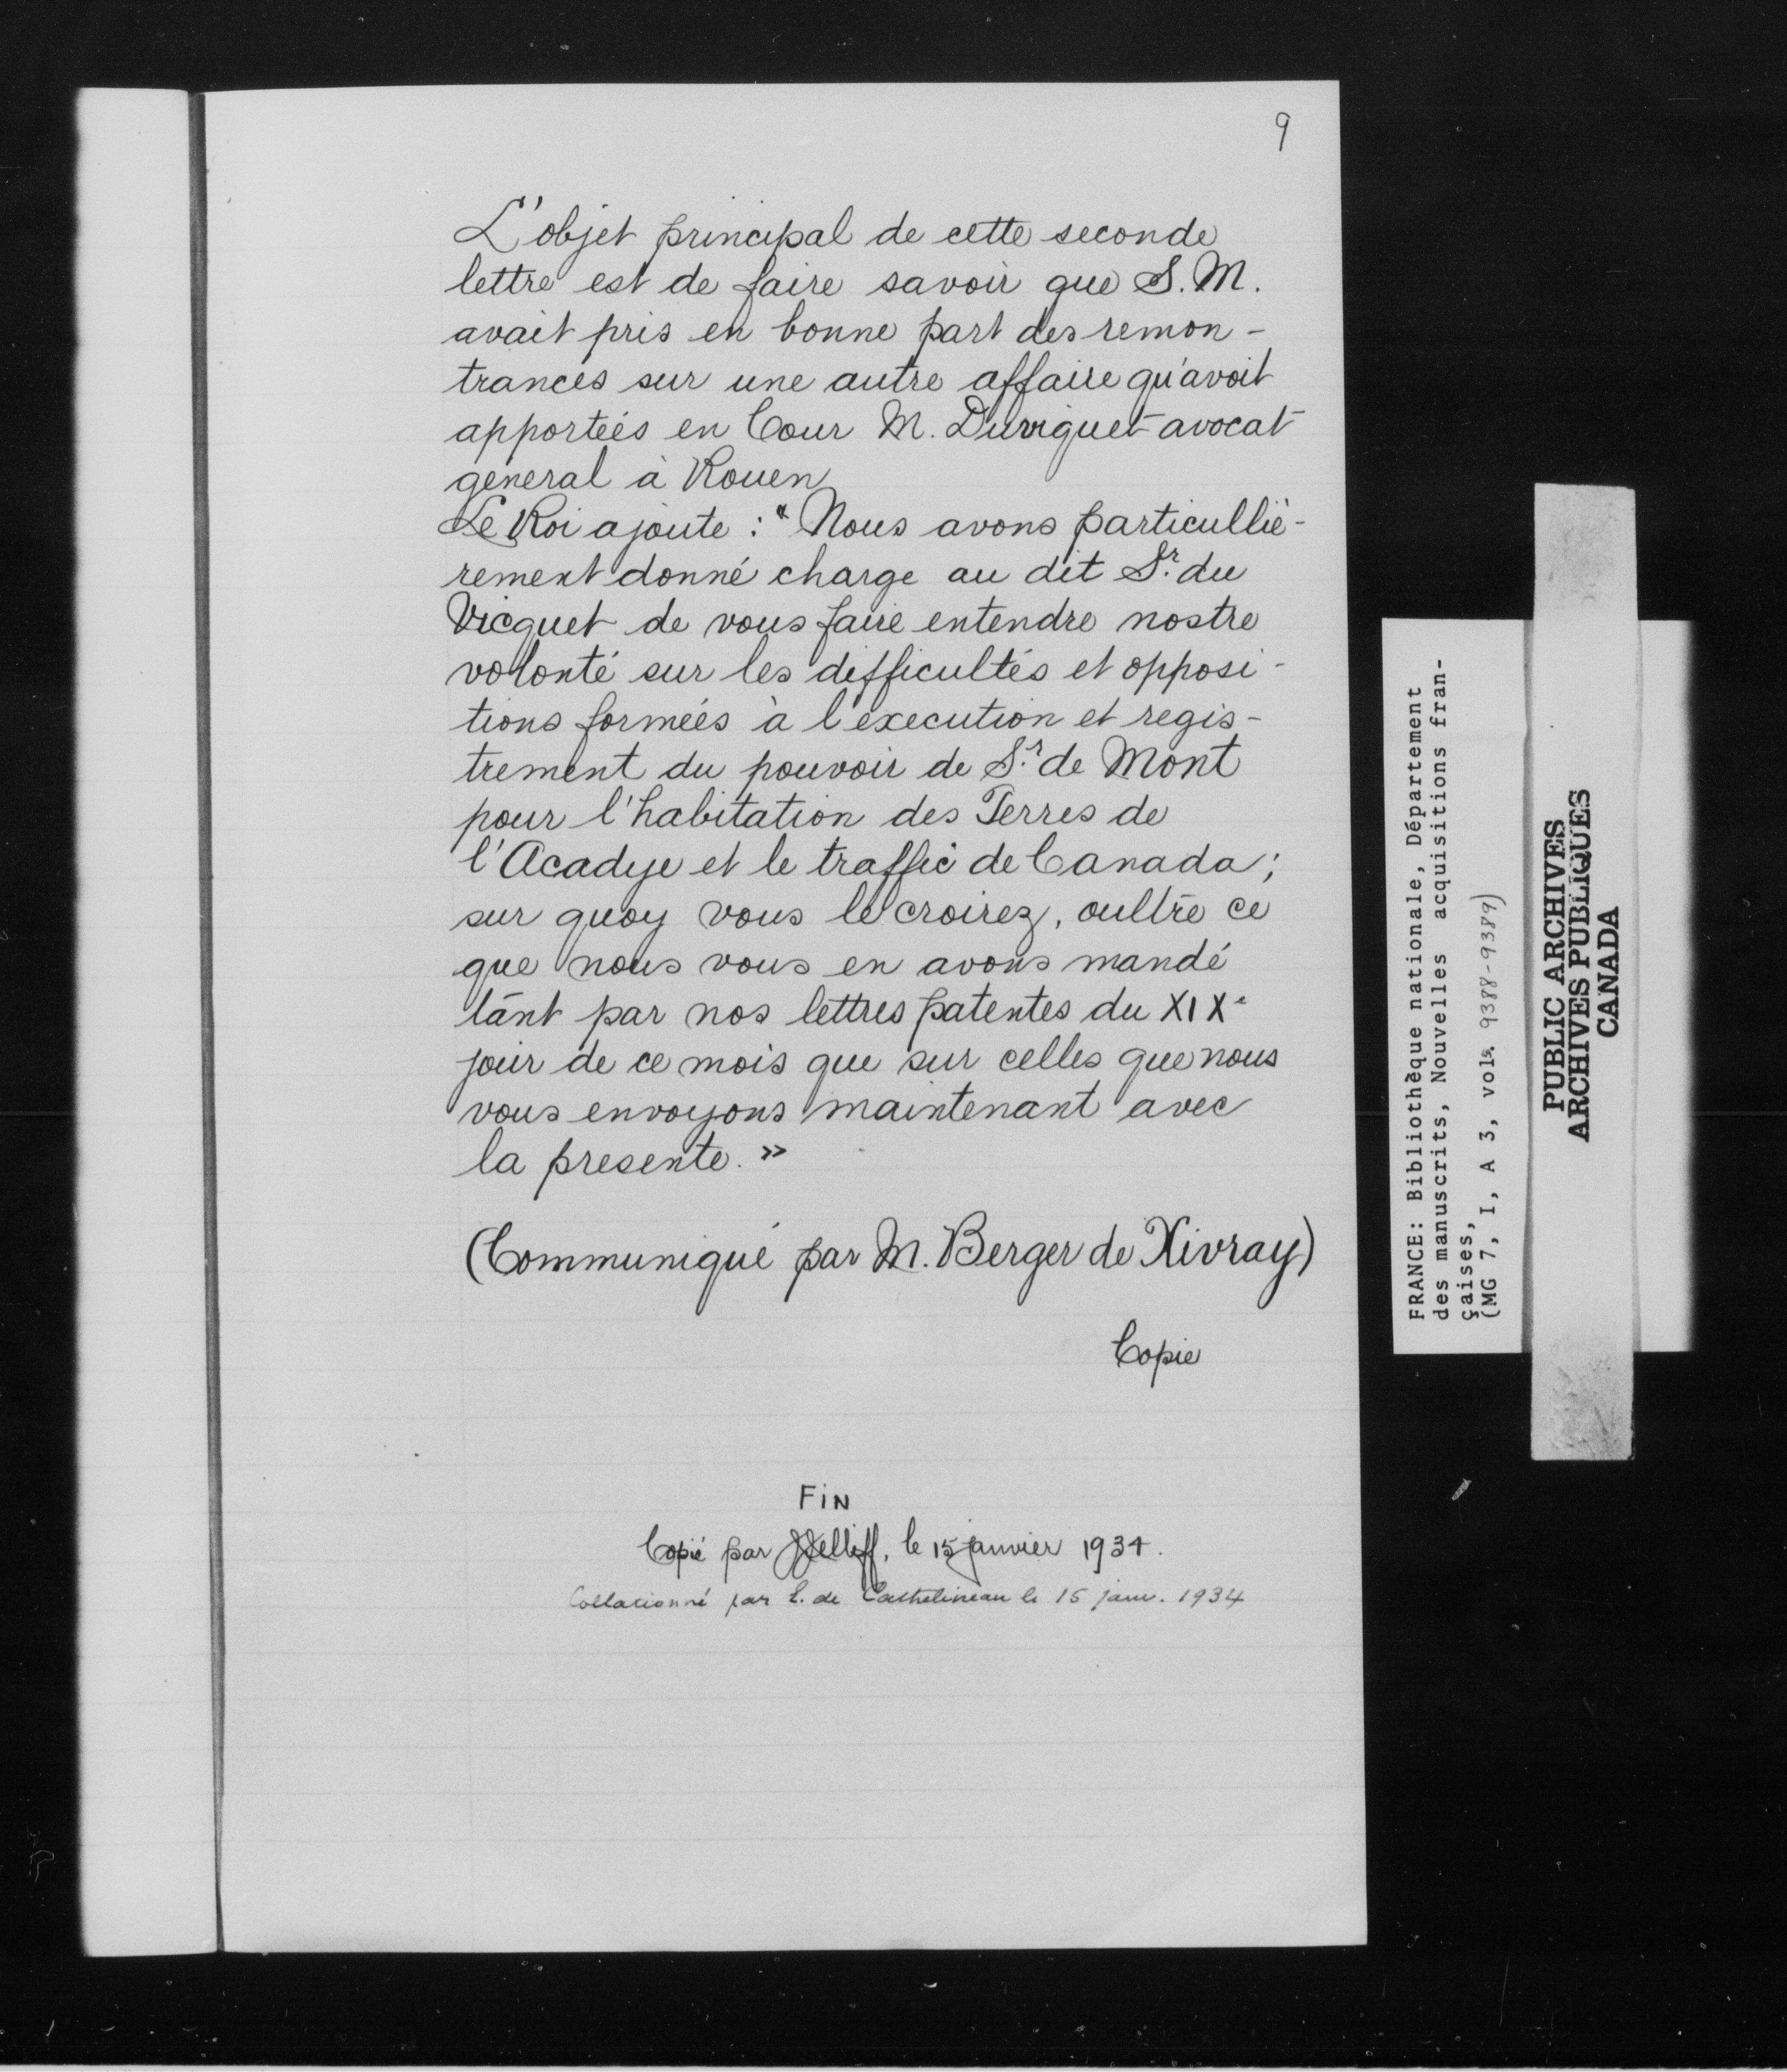 9
L'objet principal de cette seconde
lettre est de faire savoir que S. M.
avait pris en bonne part des remon-
trances sur une autre affaire qu'avoit
apportées en Cour M. Duviquet avocat
general à Rouen
Le Roi ajoute : "Nous avons particulliè-
rement donné charge au dit Sr. du
Vicquet de vous faire entendre nostre
volonté sur les difficultés et opposi-
tions formées à l'execution et regis-
trement du pouvoir de Sr. de Mont
pour l'habitation des Terres de
l'Acadye et le traffic de Canada ;
sur quoy vous le croirez, oultre ce
que nous vous en avons mandé
tant par nos lettres patentes du XIXe
jour de ce mois que sur celles que nous
vous envoyons maintenant avec
la presente. »
(Communiqué par M. Berger de Xivray)
Copie
FIN
Copié par le 15 janvier 1934.
Collationné par de le 15 janv. 1934
FRANCE: Bibliothèque nationale, Département
des manuscrits, Nouvelles acquisitions fran-
çaises,
(MG 7, I, A 3, vols. 9388-9389)
PUBLIC ARCHIVES
ARCHIVES PUBLIQUES
CANADA